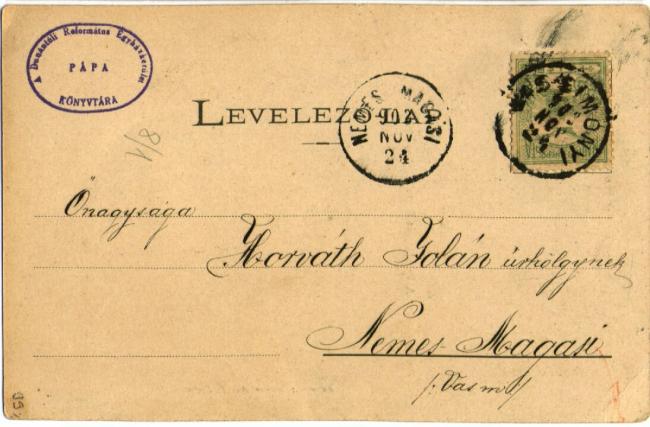 A Dunántúli Református Egyházkerület
PÁPA
KÖNYVTÁRA
1/8
LEVELEZŐ-LAP
NEMES MAGASI
902
NOV
24
SIMONYI
NOV
Őnagysága
Horváth Jolán úrhölgynek
Nemes-Magasi
/: Vas m :/